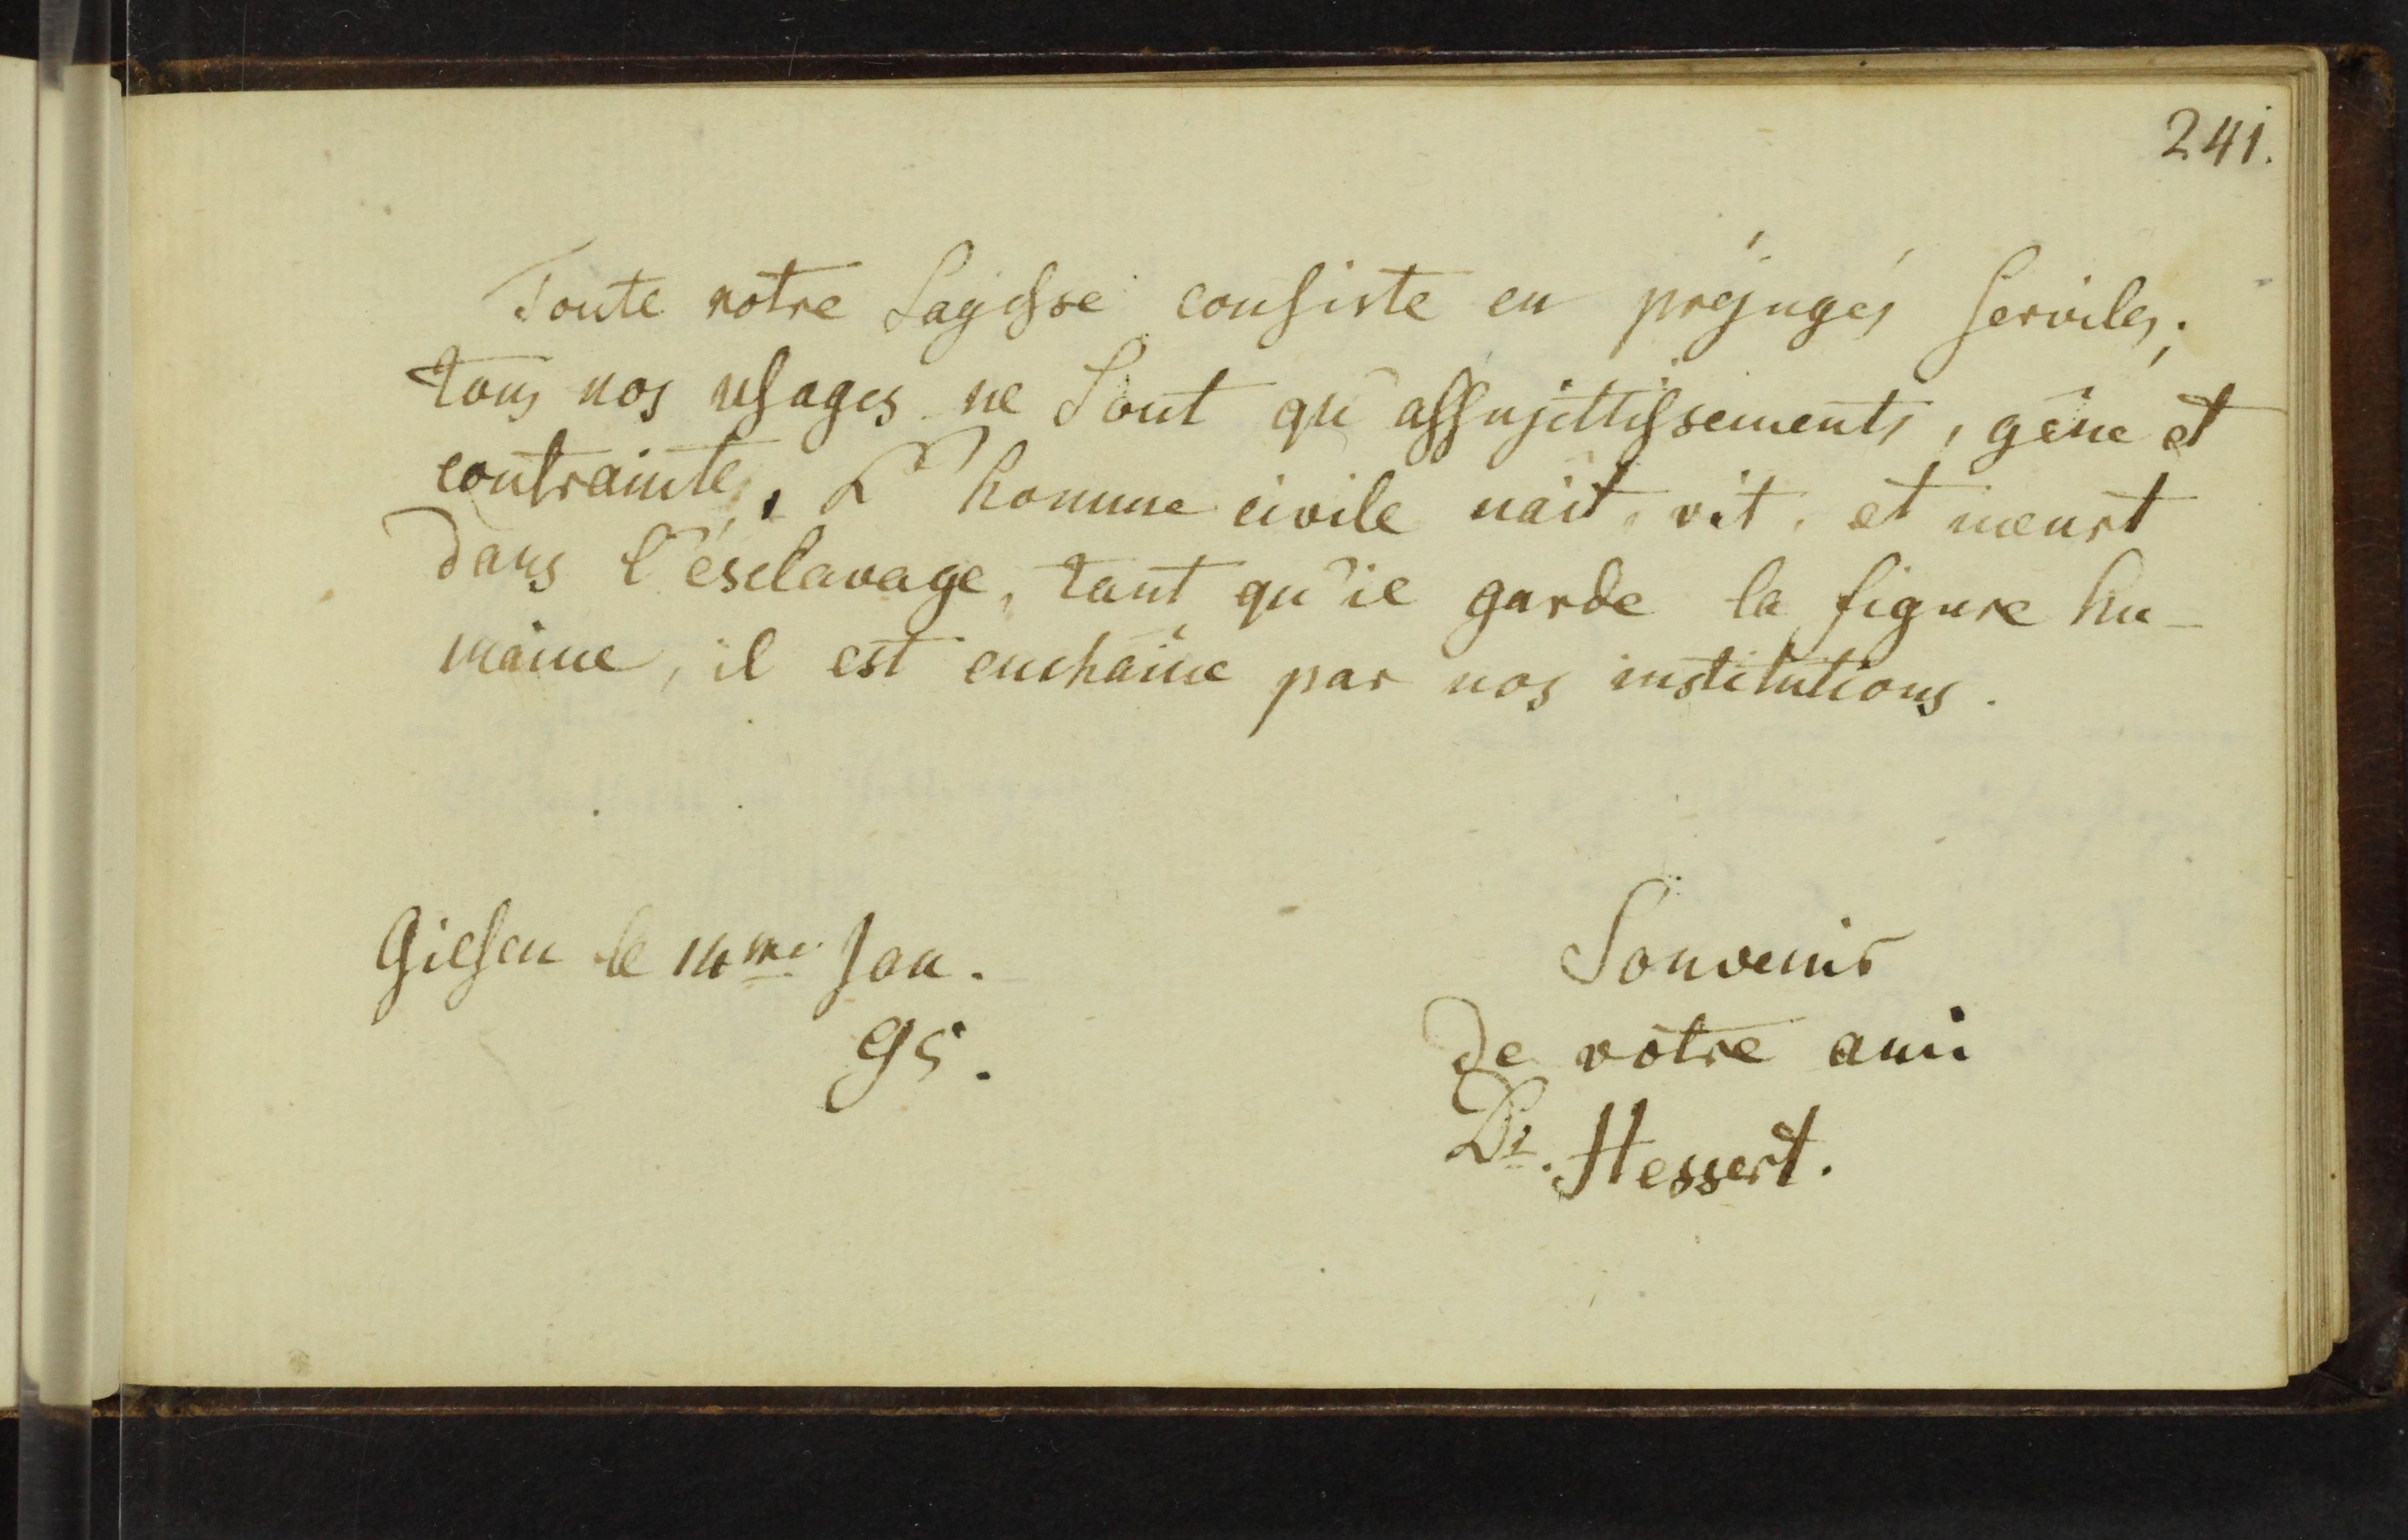 241.
Toute notre Sagesse consiste en préjugés serviles;
tous nos usages ne Sont qu'assujettissements, gêne et
contrainte. L'homme civile naît, vit, et meurt
dans l'ésclavage, tant qu'il garde la figure hu-
maine, il est enchaine par nos institutions.
Giesen le 14me Jan.
95.
Souvenir
de votre ami
Dr. Hessert.